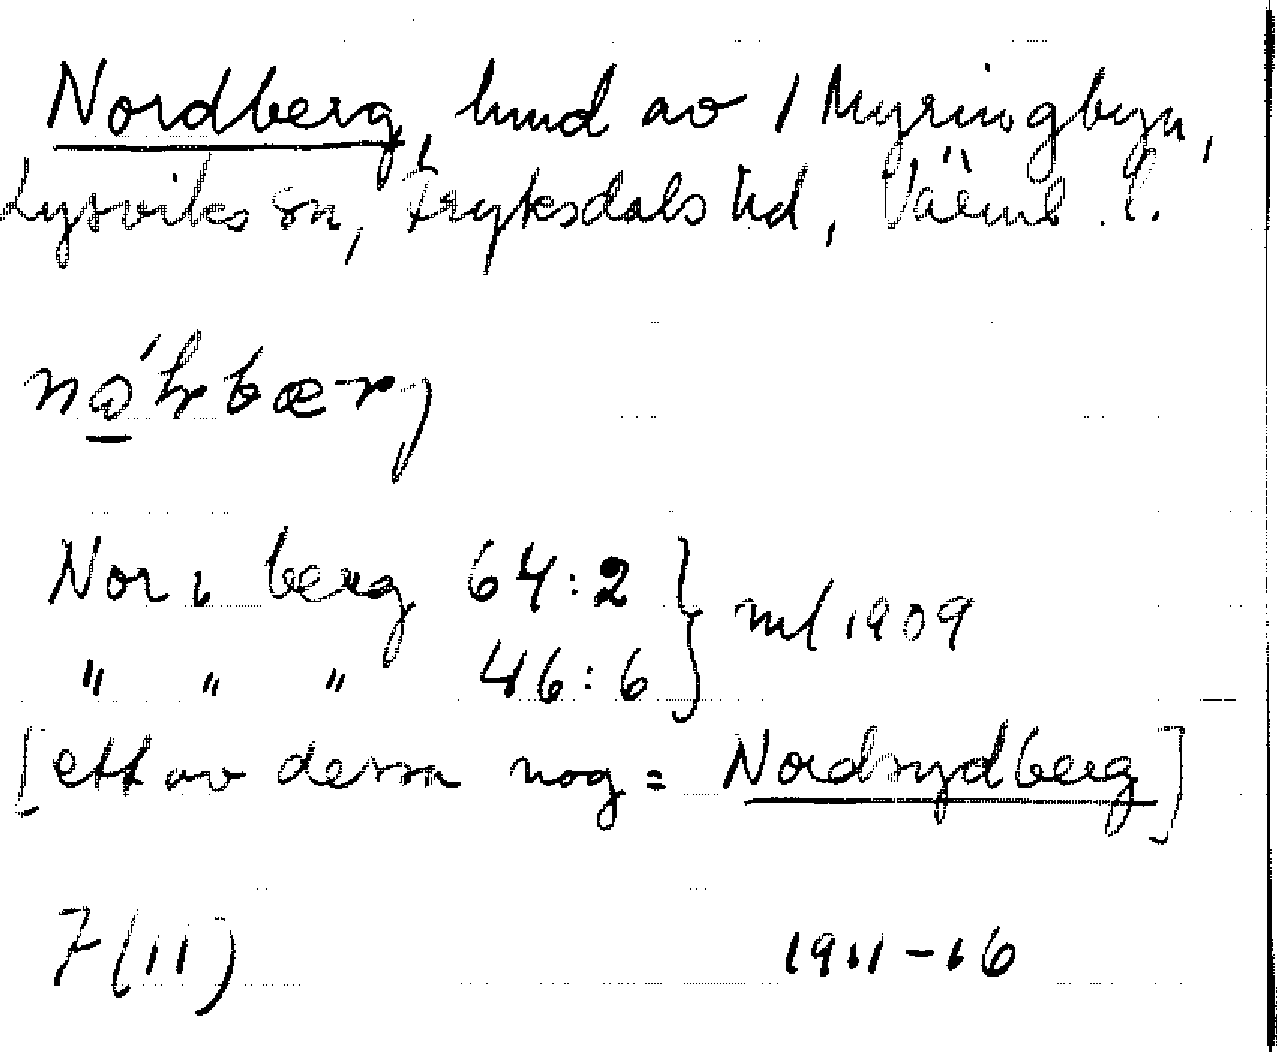 Nordberg, hmd av 1 Myringbyn,
Lysviks sn, Fryksdals hd, Värml. l.
nǫ́ḥrbærj
Nor i berg 64:2 } ml 1909
" " " 46:6
[ett av dessa nog = Nordsydberg]
7(11) 1911-16